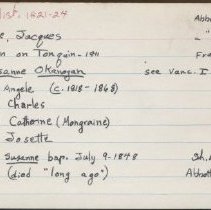 list. 1821-24
Abbo
e, Jacques
"
n on Tonquin - 1811
Fr
sanne Okanogan
see Vanc. I
Angele (c. 1818 - 1868)
Charles
Catherine (Mongraine)
Josette
Susanne bap. July 9-1848
Sh.
(died "long ago")
Abbott